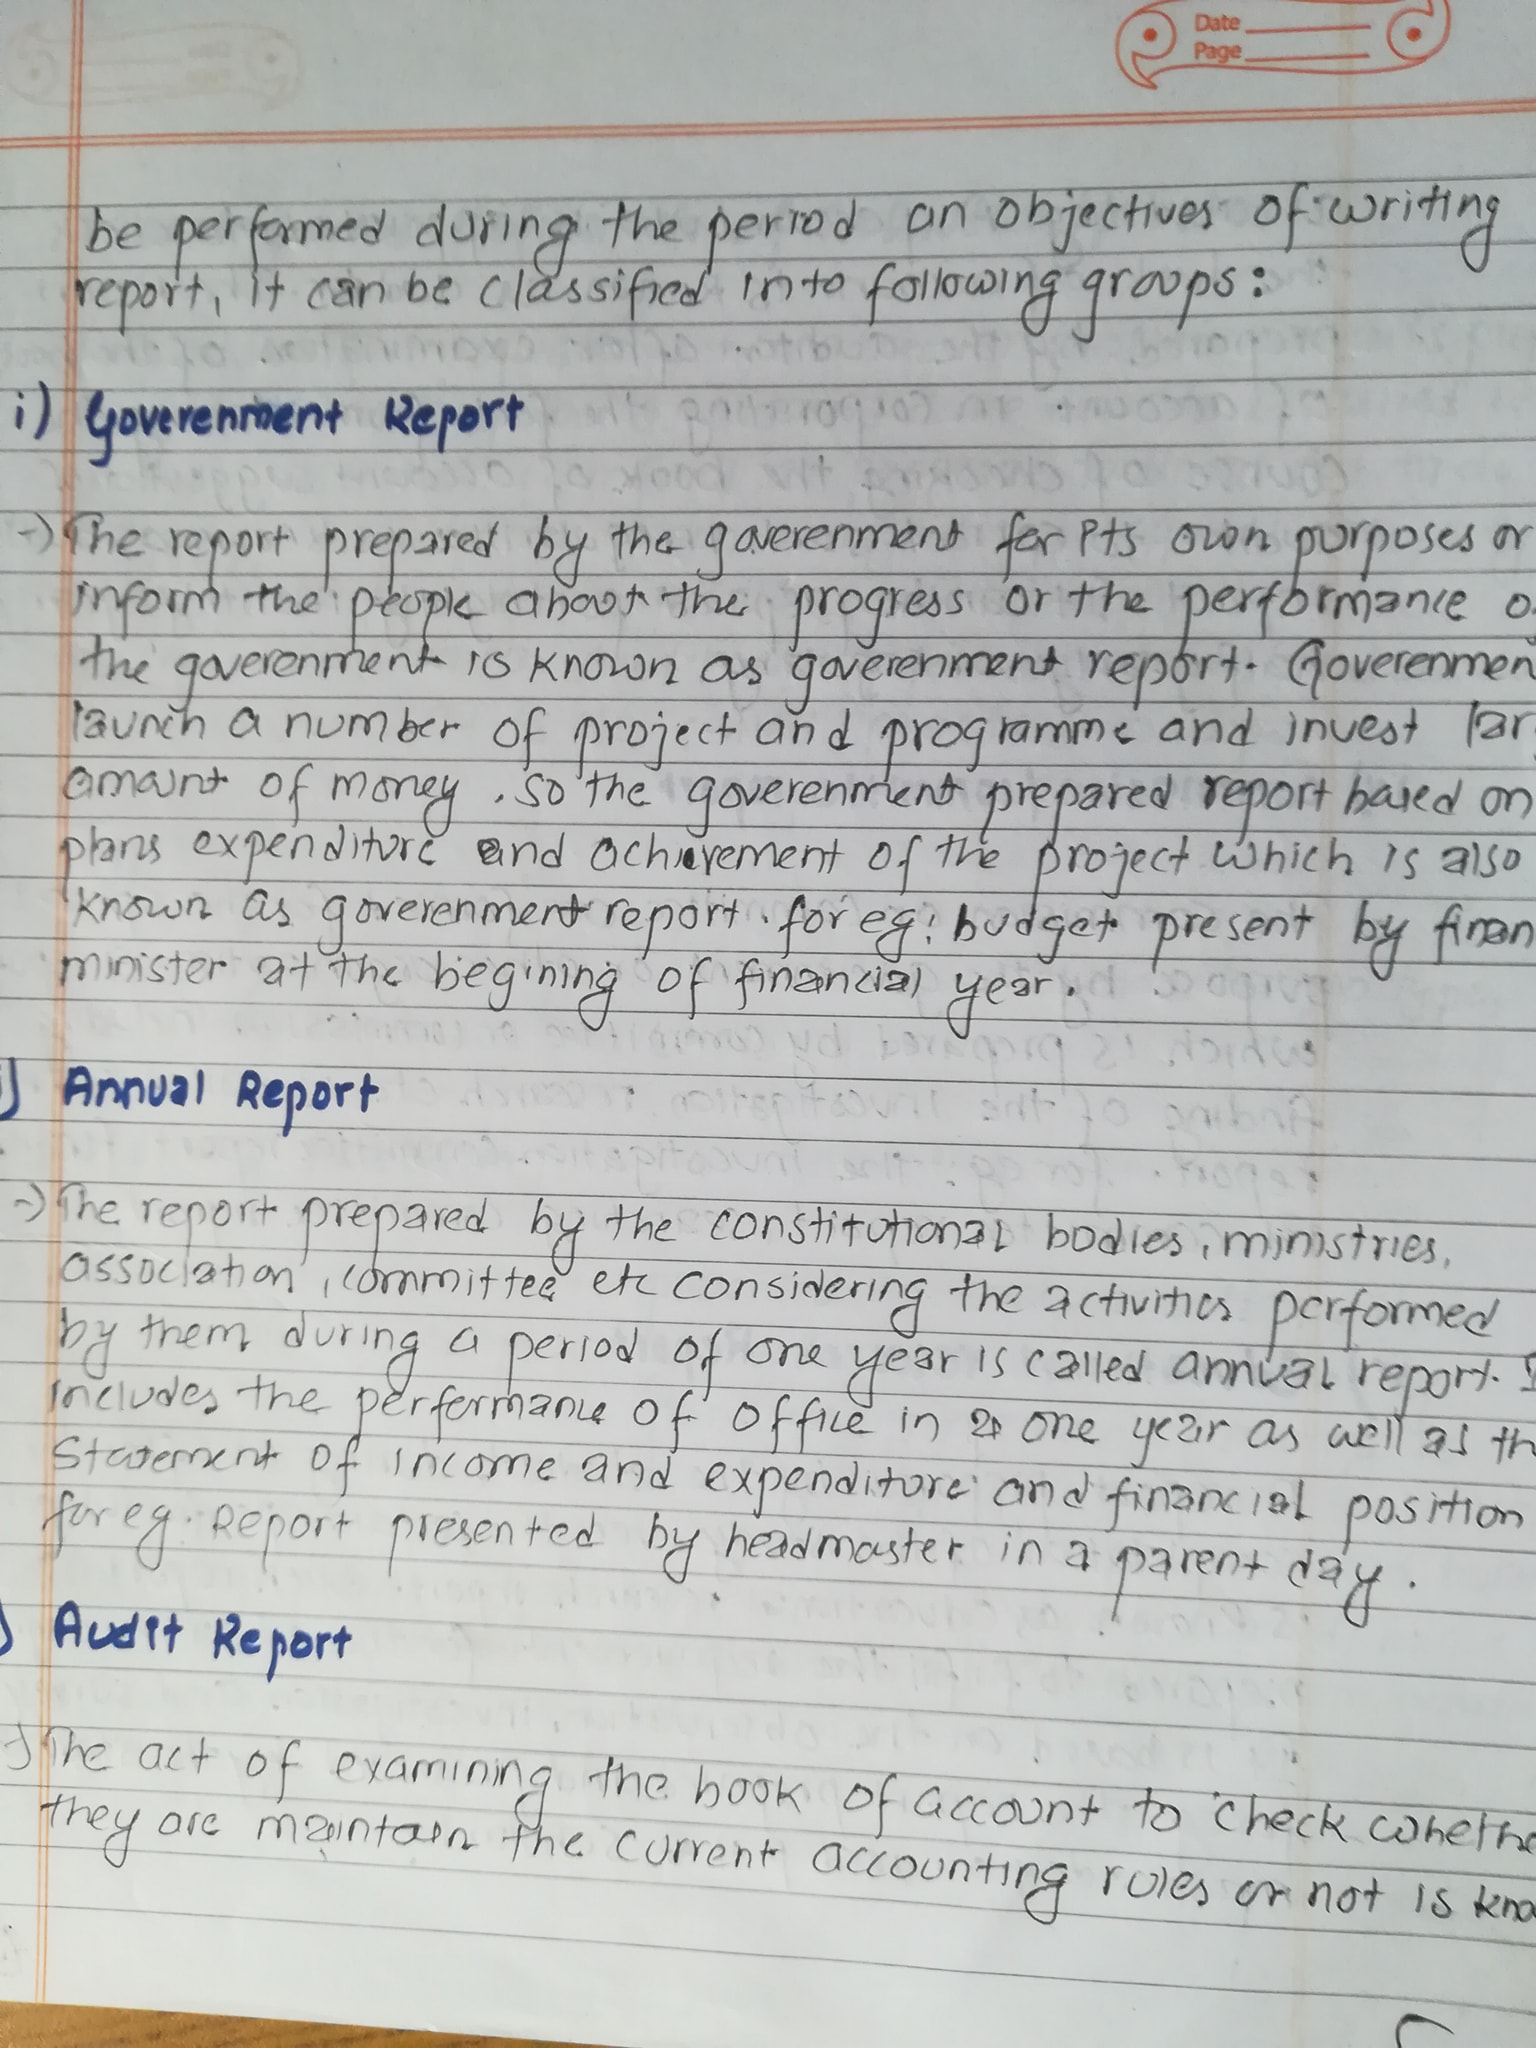 Date
Page
be performed during the period an objectives of writing
report, it can be classified into following groups:
i) Goverenment Report
→ The report prepared by the goverenment for its own purposes or
inform the people about the progress or the performance o
the goverenment is known as goverenment report. Goverenmen
launch a number of project and programme and invest lar
amount of money. so the goverenment prepared report based on
plans expenditure and achievement of the project which is also
known as goverenment report. for eg: budget present by finan
minister at the begining of financial year.
) Annual Report
→ The report prepared by the constitutional bodies, ministries,
association, committee etc considering the activities performed
by them during a period of one year is called annual report. I
includes the performance of office in a one year as well as th
statement of income and expenditure and financial position
for eg. Report presented by headmaster in a parent day.
) Audit Report
→ The act of examining the book of account to check whethe
they are maintain the current accounting rules or not is kno